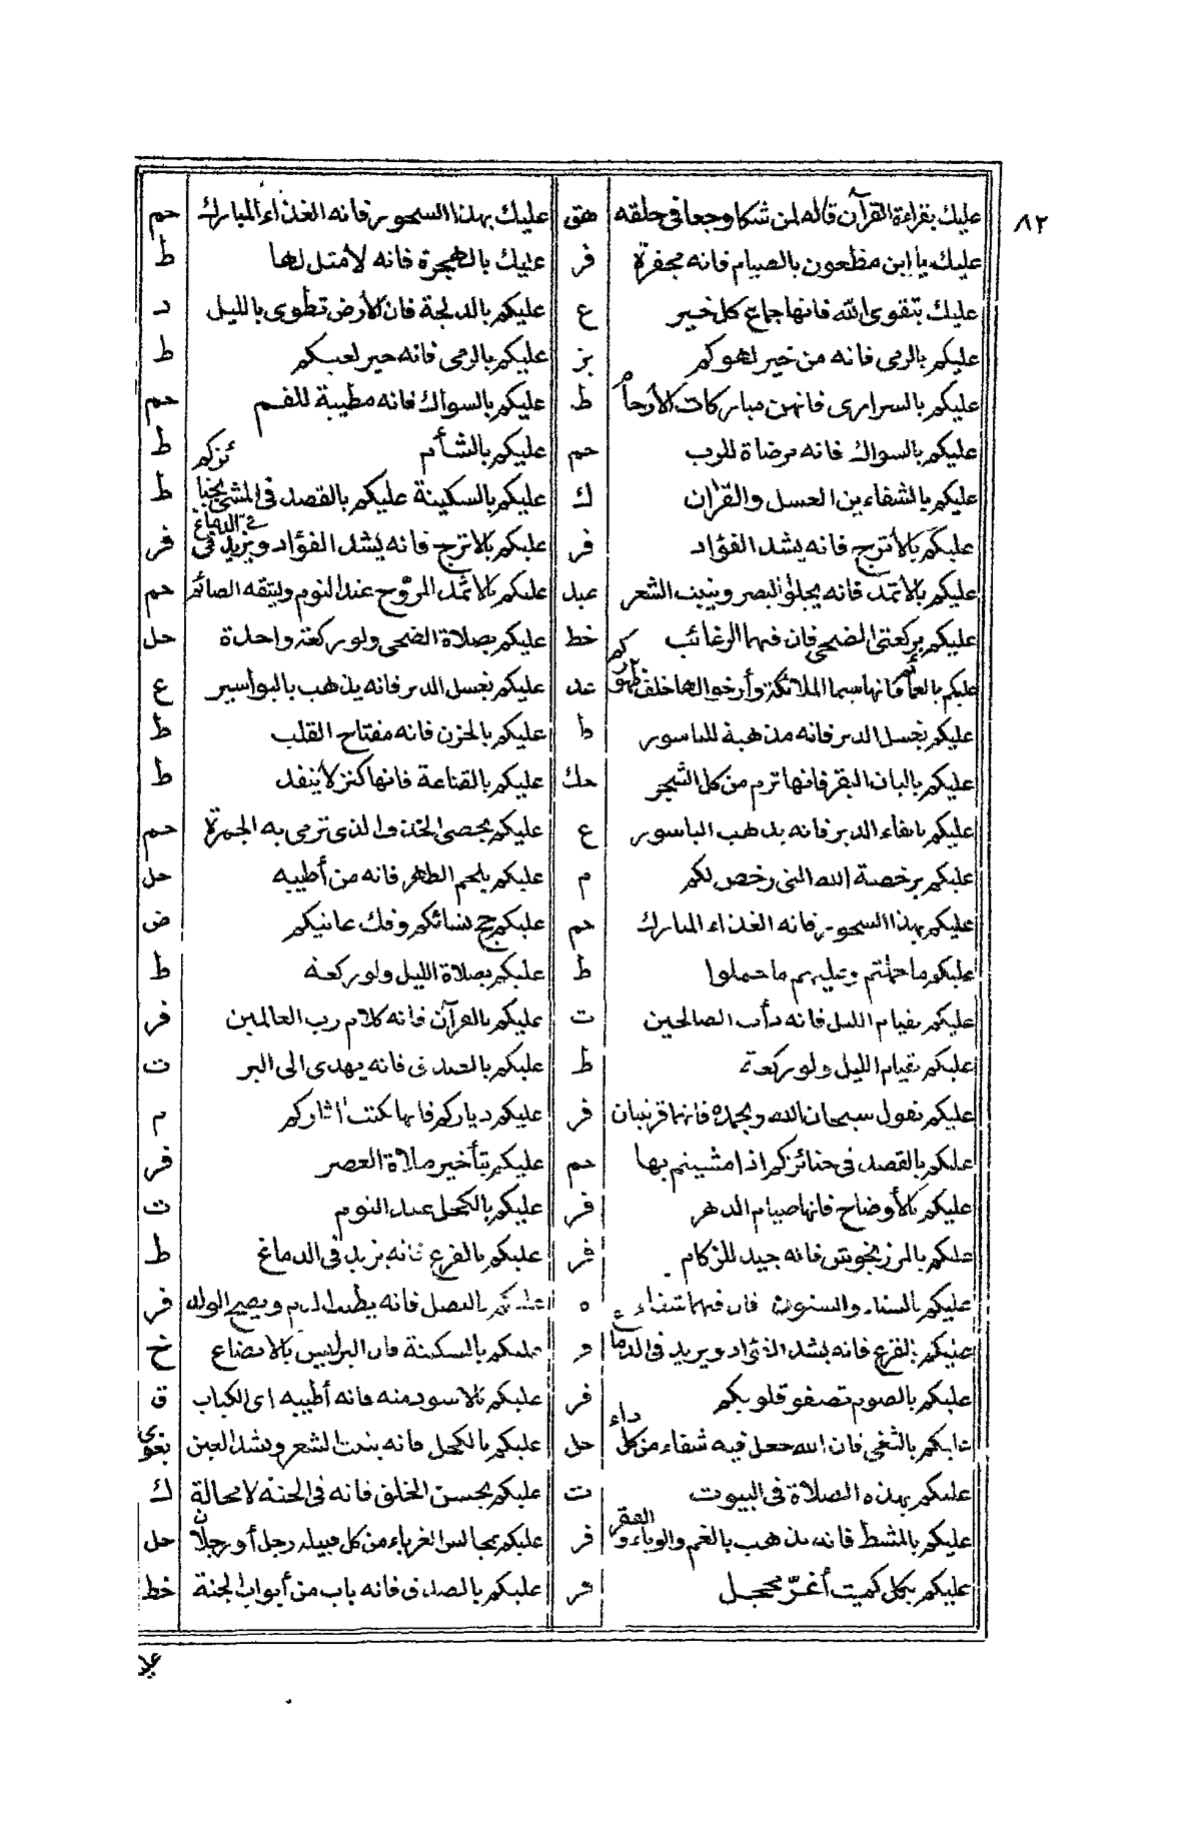 ٨٢
عليك بقراءة القرآن قاله لمن شكا وجعا فى حلقه هق
عليك يا ابن مظعون بالصيام فانه مجفرة فر
عليك بتقوى الله فانها جماع كل خير ع
عليكم بالرمى فانه من خير لهوكم بز
عليكم بالسرارى فانهن مباركات الأرحام ط
عليكم بالسواك فانه مرضاة للرب حم
عليكم بالشفاءين العسل والقرآن ك
عليكم بالأترج فانه يشد الفؤاد فر
عليكم بالاثمد فانه يجلو البصر وينبت الشعر عبد
عليكم بركعتى الضحى فان فيهما الرغائب خط
عليكم بالعمائم فانها سيما الملائكة وأرخوا لها خلف ظهوركم عد
عليكم بغسل الدبر فانه مذهبة للباسور ط
عليكم بالبان البقر فانها ترم من كل الشجر حك
عليكم بانقاء الدبر فانه يذهب الباسور ع
عليكم برخصة الله التى رخص لكم م
عليكم بهذا السحور فانه الغذاء المبارك حم
عليكم ما حملتم وعليهم ما حملوا ط
عليكم بقيام الليل فانه دأب الصالحين ت
عليكم بقيام الليل ولو ركعة ط
عليكم بقول سبحان الله وبحمده فانهما قرنبان فر
عليكم بالقصد فى جنائزكم اذا مشيتم بها حم
عليكم بالأوضاح فانها صيام الدهر فر
عليكم بالمرزنجوش فانه جيد للزكام فر
عليكم بالسناء والسنوت فان فيهما شفاء ه
عليكم بالقرع فانه يشد الفؤاد ويزيد فى الدماغ فر
عليكم بالصوم تصفو قلوبكم فر
عليكم بالثغى فان الله جعل فيه شفاء من كل داء حل
عليكم بهذه الصلاة فى البيوت ت
عليكم بالمشط فانه يذهب بالغم والوباء والفقر فر
عليكم بكل كميت أغرّ محجل
عليك بهذا السحور فانه الغذاء المبارك حم
عليك بالهجرة فانه لا مثل لها ط
عليكم بالدلجة فان الأرض تطوى بالليل د
عليكم بالرمى فانه خير لعبكم ط
عليكم بالسواك فانه مطيبة للفم حم
عليكم بالشأم ط
عليكم بالسكينة عليكم بالقصد فى المشى بجنائزكم ط
عليكم بالاترج فانه يشد الفؤاد ويزيد فى الدماغ فر
عليكم بالاثمد المروّح عند النوم وليتقه الصائم حم
عليكم بصلاة الضحى ولو ركعة واحدة حل
عليكم بغسل الدبر فانه يذهب بالبواسير ع
عليكم بالحزن فانه مفتاح القلب ط
عليكم بالقناعة فانها كنز لا ينفد ط
عليكم بحصى الخذف الذى ترمى به الجمرة حم
عليكم بلحم الظهر فانه من أطيبه حل
عليكم حج نسائكم وفك عانيكم ض
عليكم بصلاة الليل ولو ركعة ط
عليكم بالقرآن فانه كلام رب العالمين فر
عليكم بالصدق فانه يهدى الى البر ت
عليكم دياركم فانها تكتب آثاركم م
عليكم بتأخير صلاة العصر فر
عليكم بالكحل عند النوم ت
عليكم بالقرع فانه يزيد فى الدماغ ط
عليكم بالبصل فانه يطيب الدم ويصح الولد فر
عليكم بالسكينة فان البر ليس بالايضاع خ
عليكم بالاسود منه فانه أطيبه اى الكباب ق
عليكم بالكحل فانه ينبت الشعر ويشد العين بغوى
عليكم بحسن الخلق فانه فى الجنة لا محالة ك
عليكم بمجالس الغرباء من كل قبيلة رجل أو رجلان حل
عليكم بالصدق فانه باب من أبواب الجنة خط